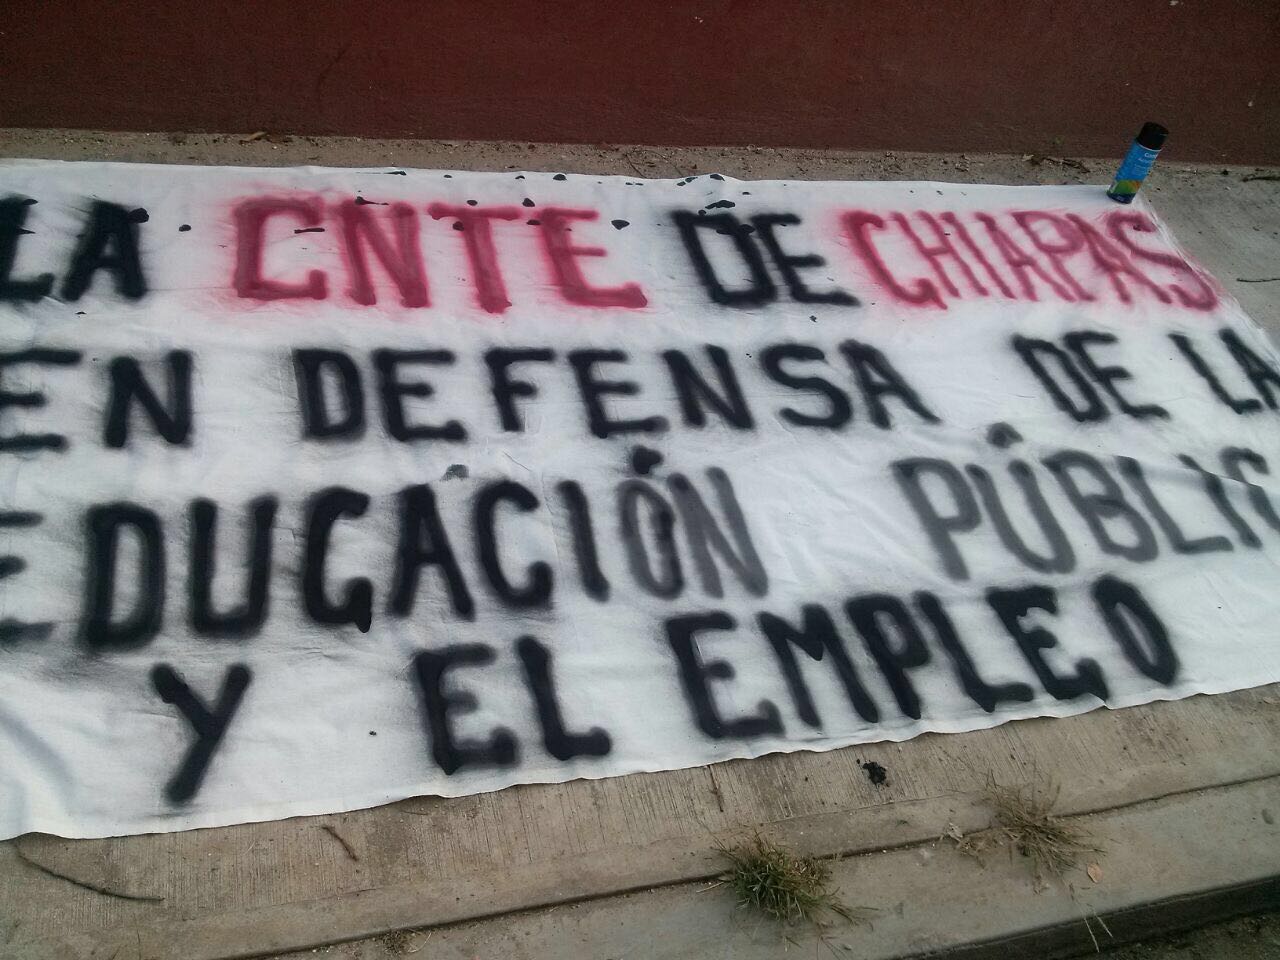 LA CNTE DE CHIAPAS
EN DEFENSA DE LA
EDUCACIÓN PÚBLIC
Y EL EMPLEO